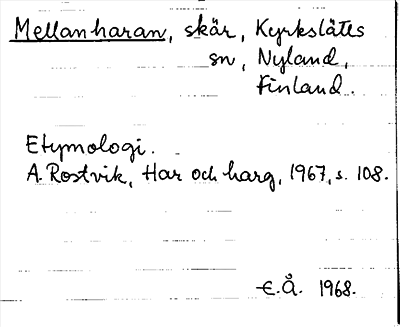 Mellanharan, skär, Kyrkslätts
sn, Nyland,
Finland.
Etymologi.
A. Rostvik, Har och harg, 1967, s. 108.
E.Å. 1968.